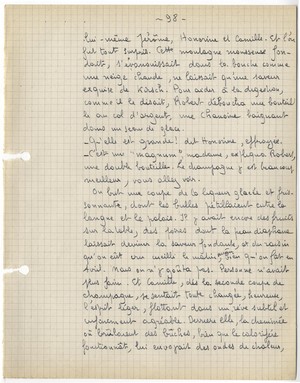 - 98 -
lui-même Jérôme, Honorine et Camille. Et l'on
fut tout surpris. Cette montagne mousseuse fon-
dait, s'évanouissait dans la bouche comme
une neige chaude, ne laissait qu'une saveur
exquise de kirsch. Pour aider à la digestion,
comme il le disait, Robert déboucha une bouteil-
le au col d'argent, une chanoine baignant
dans un seau de glace.
- Qu'elle est grande! dit Honorine, effrayée.
- C'est un "magnum", madame, expliqua Robert,
une double bouteille. Le champagne y est beaucoup
meilleur, vous allez voir.
On but une coupe de la liqueur glacée et fris-
sonnante, dont les bulles pétillaient entre la
langue et le palais. Il y avait encore des fruits
sur la table, des poires dont la peau diaphane
laissait deviner la saveur fondante, et du raisin
qu'on eût cru cueilli le matin
Mais on n'y goûta pas. Personne n'avait
plus faim. Et Camille, dès la seconde coupe de
champagne, se sentait toute changée, heureuse,
l'esprit léger, flottant dans un rêve subtil et
infiniment agréable. Derrière elle, la cheminée
où brûlaient des bûches, bien que le calorifère
fonctionnât, lui envoyait des ondes de chaleur,